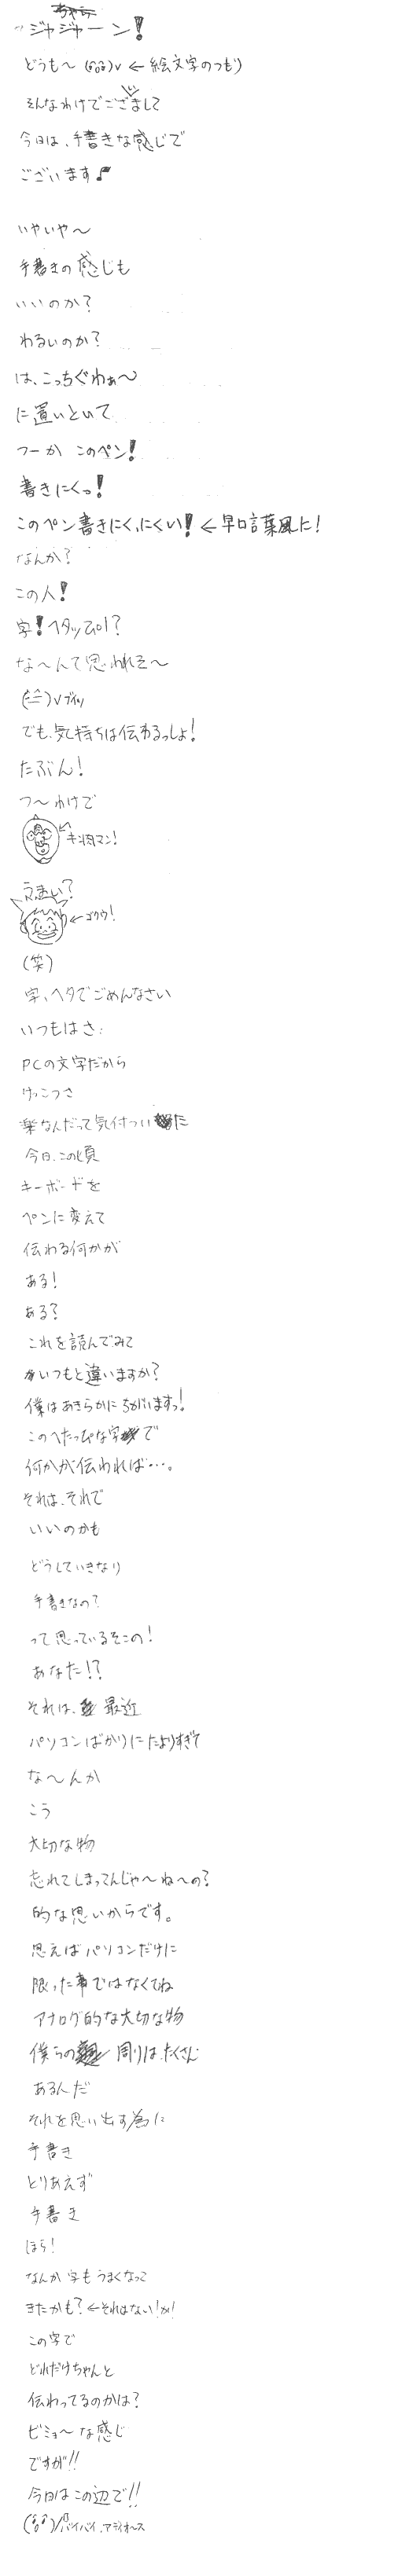 ジャジャーン!
どうも〜 (^o^)v ← 絵文字のつもり
そんなわけでございまして
今日は、手書きな感じで
ございます♪
いやいや〜
手書きの感じも
いいのか?
わるいのか?
は、こっちぐわぁ〜
に置いといて
つーか このペン!
書きにくっ!
このペン書きにく、にくい! ← 早口言葉風に!
なんか?
この人!
字! ヘタッぴ!?
な〜んて思われそ〜
(^ニ^)v ブイッ
でも、気持ちは伝わるっしょ!
たぶん!
つ〜わけで
← キン肉マン!
うまい?
← ゴクウ!
(笑)
字、ヘタでごめんなさい
いつもはさ、
PCの文字だから
けっこうさ
楽なんだって気付い た
今日、この頃
キーボードを
ペンに変えて
伝わる何かが
ある!
ある?
これを読んでみて
いつもと違いますか?
僕はあきらかにちがいますっ!
このへたっぴな字 で
何かが伝われば…。
それは、それで
いいのかも
どうしていきなり
手書きなの?
って思っているそこの!
あなた!?
それは、 最近
パソコンばかりにたよりすぎて
な〜んか
こう
大切な物
忘れてしまってんじゃ〜ね〜の?
的な思いからです。
思えばパソコンだけに
限った事ではなくてね
アナログ的な大切な物
僕らの 周りは、たくさん
あるんだ
それを思い出す為に
手書き
とりあえず
手書き
ほら!
なんか 字もうまくなって
きたかも? ← それはない!
この字で
どれだけちゃんと
伝わってるのかは?
ビミョ〜な感じ
ですが!!
今日はこの辺で!!
バイバイ、アディオース